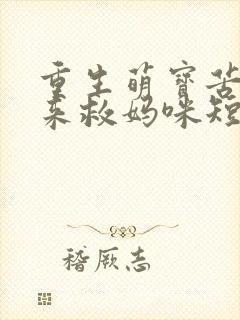 重生萌宝苦
来救妈咪短
稽厥志